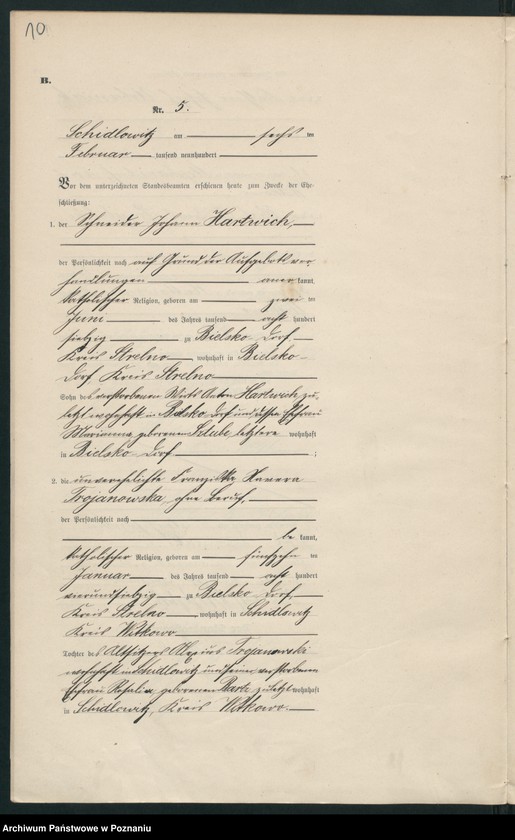 10
B.
Nr. 5.
Schidlowitz am sechsten
Februar tausend neunhundert
Vor dem unterzeichneten Standesbeamten erschienen heute zum Zwecke der Ehe-
schließung:
1. der Schneider Johann Hartwich,
der Persönlichkeit nach auf Grund der Aufgebotsver
handlungen anerkannt,
katholischer Religion, geboren am zweiten
Juni des Jahres tausend acht hundert
siebzig zu Bielsko Dorf
Kreis Strelno, wohnhaft in Bielsko
Dorf Kreis Strelno
Sohn des verstorbenen Wirts Anton Hartwich zu-
letzt wohnhaft in Bielsko Dorf und dessen Ehefrau
Marianna geborenen letztere wohnhaft
in Bielsko Dorf ;
2. die unverehelichte Franziska Xavera
Trojanowska ohne Beruf,
der Persönlichkeit nach
bekannt,
katholischer Religion, geboren am fünfzehnten
Januar des Jahres tausend acht hundert
vierundsiebzig zu Bielsko Dorf,
Kreis Strelno, wohnhaft in Schidlowitz
Kreis Witkowo
Tochter des Altsitzers Alexius Trojanowski
wohnhaft in Schidlowitz und seiner verstorbenen
Ehefrau Rosalia, geborenen zuletzt wohnhaft
in Schidlowitz, Kreis Witkowo.
Archiwum Państwowe w Poznaniu